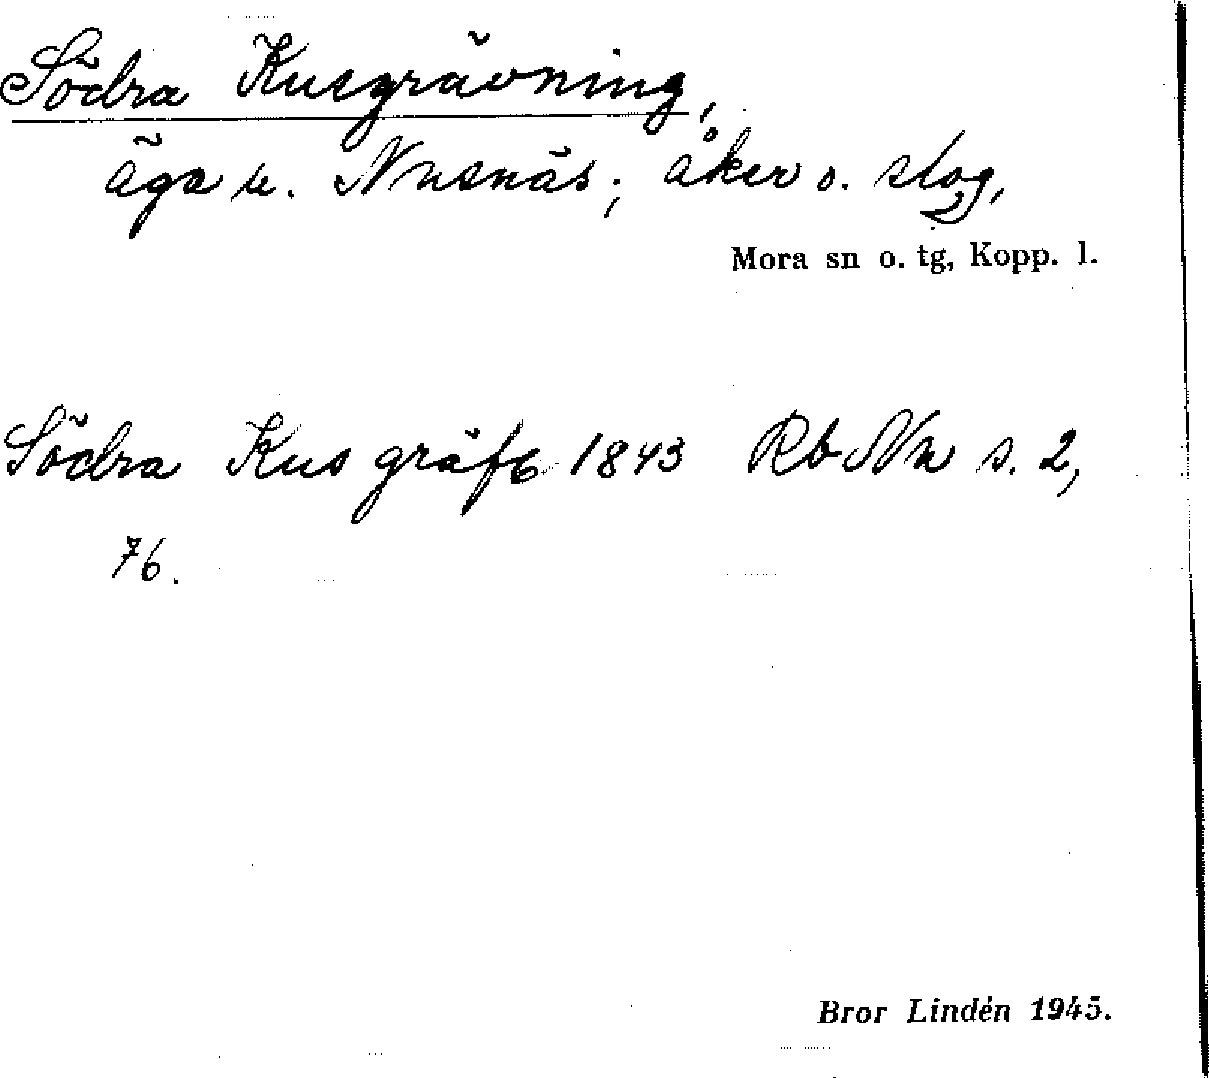 Södra Kusgrävning,
äga u. Nusnäs; åker o. slog,
Mora sn o. tg, Kopp. l.
Södra Kus gräfb 1843 Rb Nn s. 2,
76.
Bror Lindén 1945.